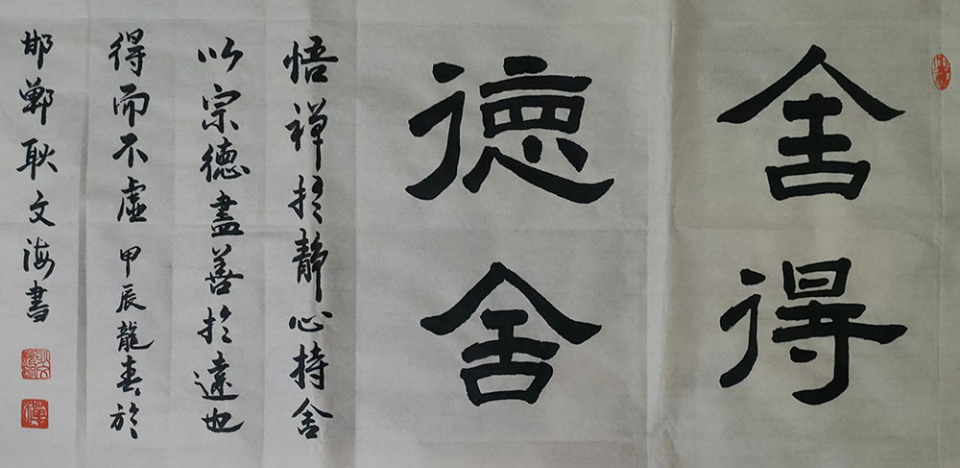 舍得
德舍
悟禅於静心持舍
以宗德盡善於遠也
得而不虚 甲辰龍春於
邯鄲耿文海書